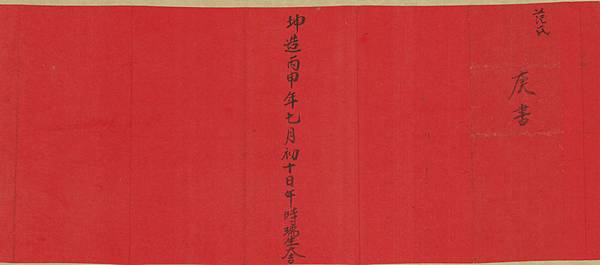 范氏
庚書
坤造丙申年七月初十日午時瑞生大吉